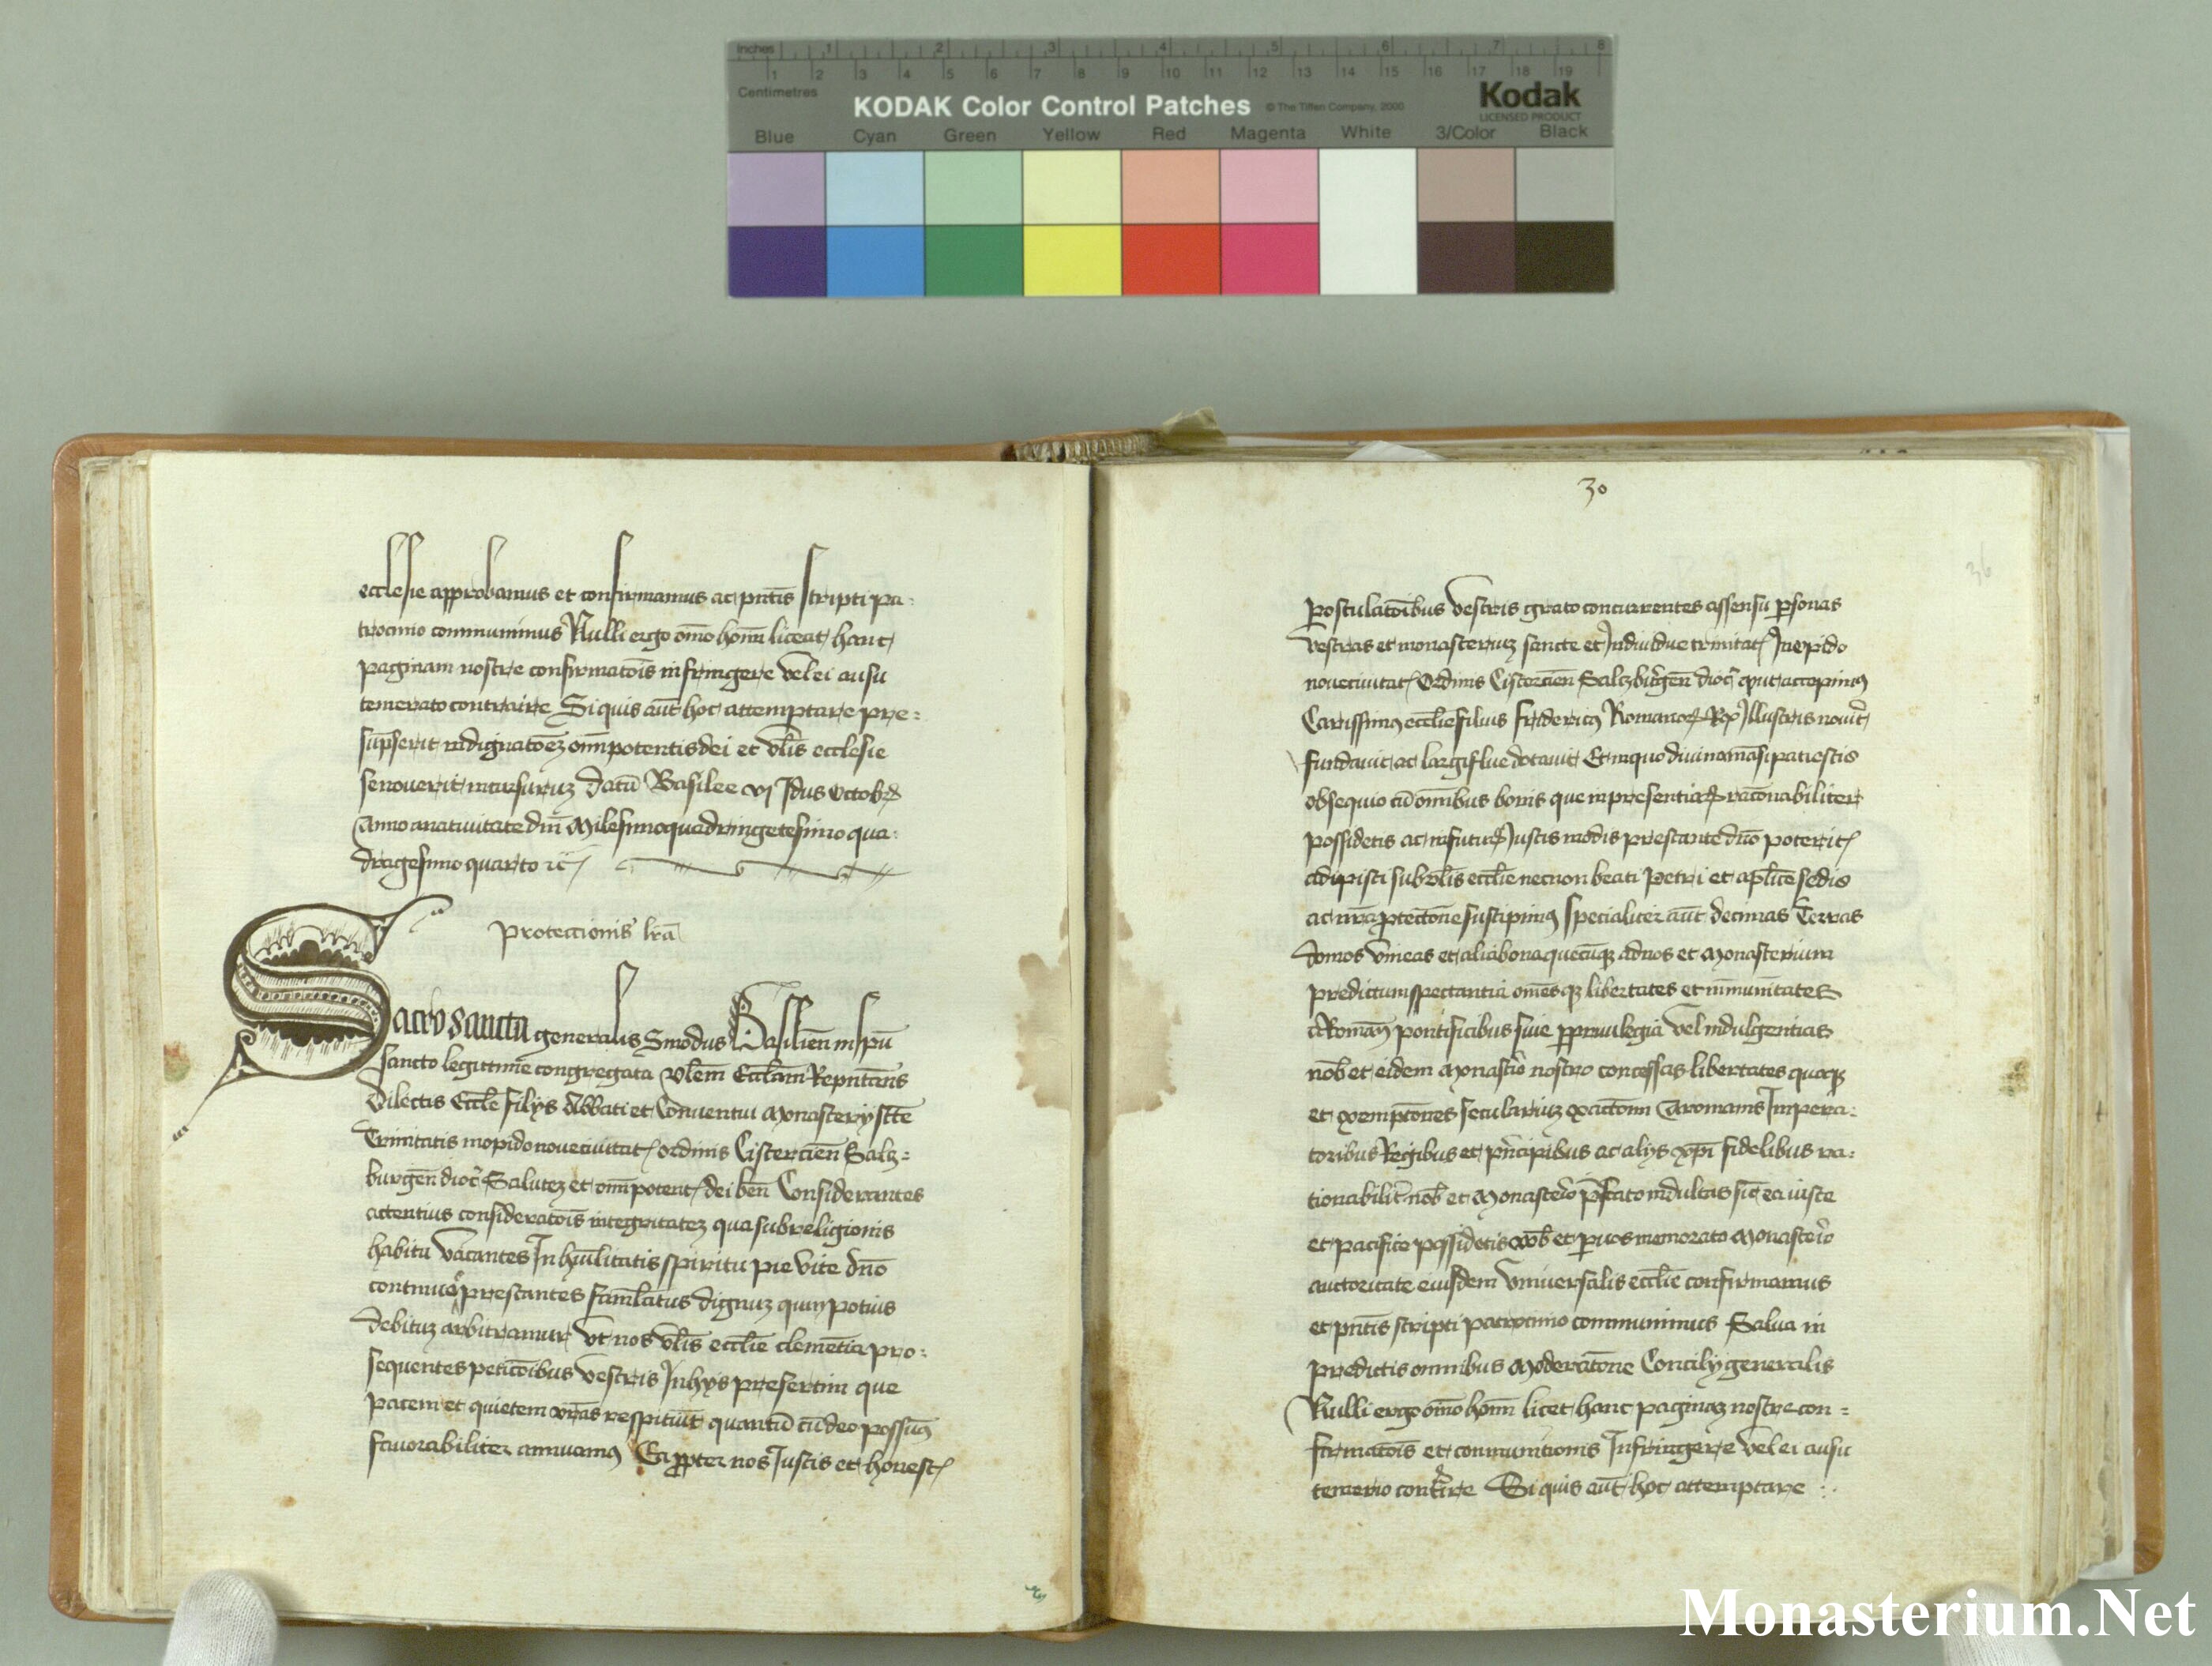 Inches 1 2 3 4 5 6 7 8
1 2 3 4 5 6 7 8 9 10 11 12 13 14 15 16 17 18 19
Centimetres
KODAK Color Control Patches © The Tiffen Company, 2000 Kodak
LICENSED PRODUCT
Blue Cyan Green Yellow Red Magenta White 3/Color Black
ecclesie approbamus et confirmamus ac pñtis scripti pa:
trocinio communimus Nulli ergo om̄o hom̄ liceat hanc
paginam nostre confirmatōis infringere vel ei ausu
temerato contraire Si quis aut̄ hoc attemptare pre:
sūpserit indignatōez om̄ipotentis dei et vl̄is ecclesie
se noverit incursuruz Datū Basilee vj Idus Octobr̄
Anno a nativitate dn̄i Milesimoquadringetesimo qua:
dragesimo quarto
Protectionis lr̄a
Sacrosancta generalis Sinodus Basilien̄ in spū
sancto legittime congregata vl̄em Eccl̄iam Repn̄tans
Dilectis Eccl̄e filijs Abbati et Conventui Monasterij sct̄e
Trinitatis in opido novecivitat̄ ordinis Cistercien̄ Salcz:
burgen̄ dioc̄ Salutez et om̄ipotent̄ dei ben̄ Considerantes
attentius consideratōis integritatez qua sub religionis
habitu vacantes In humilitatis spiritu pie vite dn̄o
continue prestantes famulatus dignuz quin potius
debituz arbitramur vt nos vl̄is eccl̄ie clemētia pro:
sequentes peticōibus vestris In hijs presertim que
pacem et quietem vr̄as respiciūt quantū cū deo possum9
favorabiliter annuamus Ea ꝓpter nos Justis et honest̄
30
36
postulatōibus vestris grato concurrentes assensu ꝑsonas
vestras et monasteriuz sancte et Individue trinitat̄ In opido
novecivitat̄ Ordinis Cistercien̄ Salczburgen̄ dioc̄ qut accepim9
Carissim9 eccl̄ie filius frideric9 Romanoꝝ Rex Illustris novit̄
fundavit ac largiflue dotavit Et in quo divino mācipati estis
obsequio cū om̄ibus bonis que inpresentiaꝝ racōnabiliter
possidetis ac in futuꝝ Justis modis prestante dn̄o poterit̄
adipisci sub vl̄is eccl̄ie necnon beati Petri et apl̄ice sedis
ac nr̄a ꝓtectōne suscipim9 specialiter aut̄ decimas Terras
domos vineas et alia bona quecūqz ad vos et Monasterium
predictum spectantia omēsqz libertates et immunitates
a Roman̄ pontificibus sive ꝑ privilegia vel indulgentias
vob̄ et eidem Monast̄io nostro concessas libertates quoqz
et exemptōnes seculariuz exactōnū a romanis Impera:
toribus Regibus et prīcipibus ac alijs xp̄i fidelibus ra:
tionabilit̄ vob̄ et Monasterio p̄fato indultas sic̄ ea iuste
et pacifice possidetis vob̄ et ꝑ vos memorato Monasterio
auctoritate eiusdem vniversalis eccl̄ie confirmamus
et pn̄tis scripti patrocinio communimus Salva in
predictis omnibus Moderatōne Concilij generalis
Nulli ergo om̄o hom̄ licet hanc paginaz nostre con=
firmatōis et communitionis Infringere vel ei ausu
temerio contraire Si quis aut̄ hoc attemptare :.
Monasterium.Net